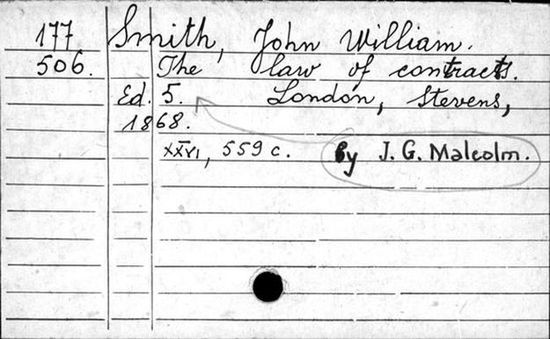 177 Smith, John William.
506. The law of contracts.
Ed. 5. London, Stevens,
1868.
XXVI, 559 c. By J. G. Malcolm.